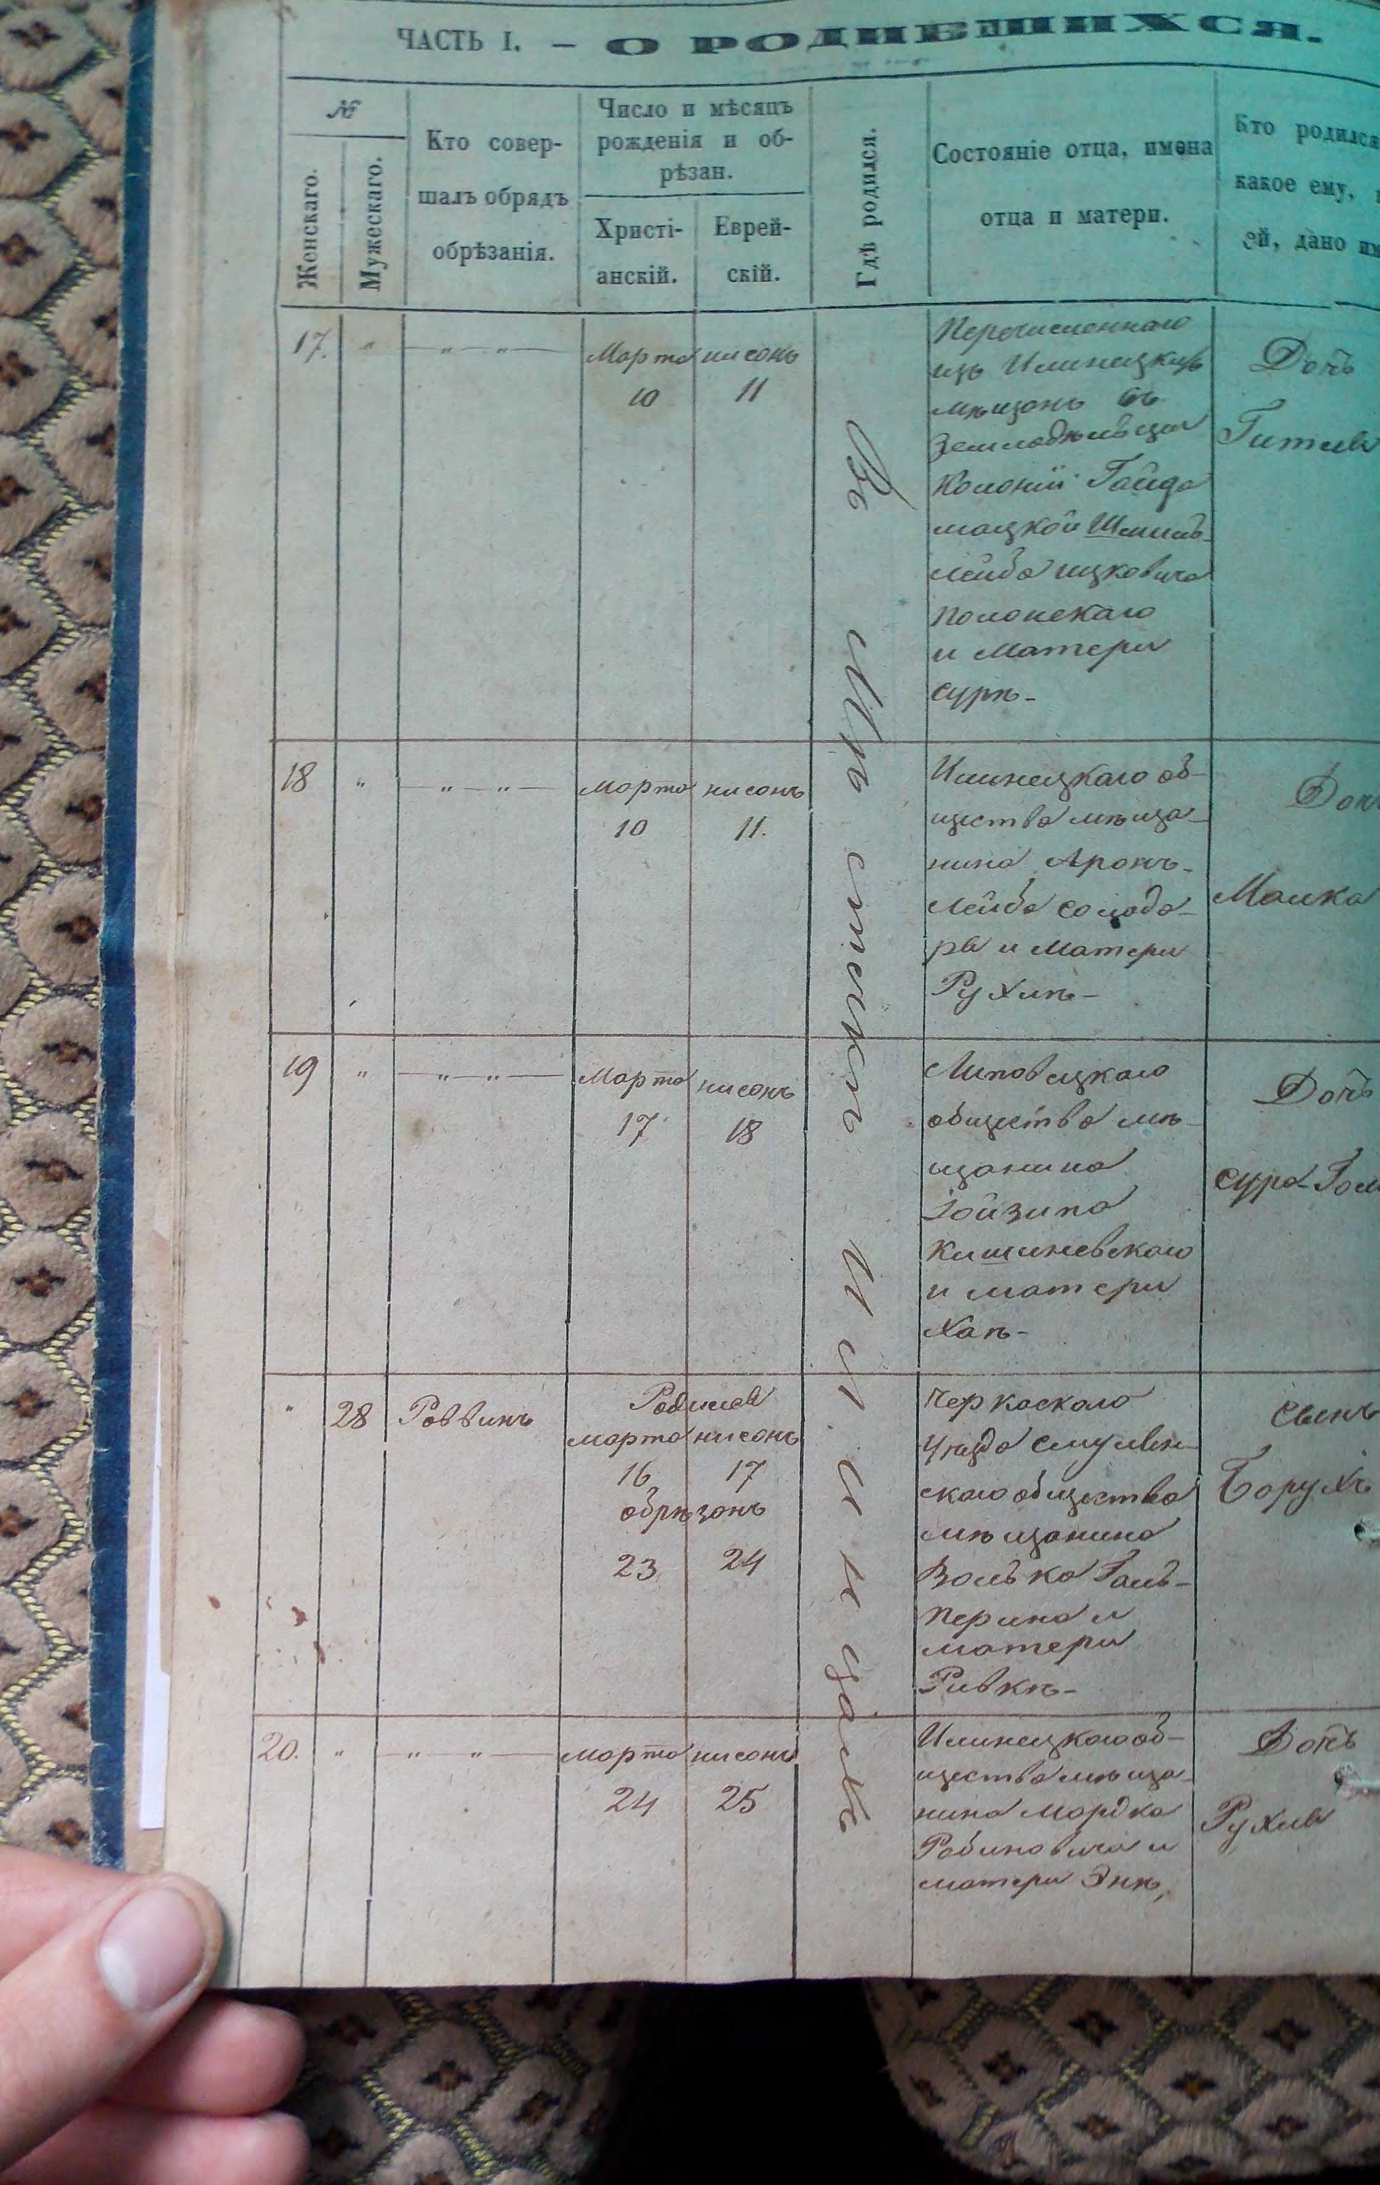 ЧАСТЬ I. — О РОДИВШИХСЯ.
№
Женскаго.
Мужескаго.
Кто совер-
шалъ обрядъ
обрѣзанія.
Число и мѣсяцъ
рожденія и об-
рѣзан.
Христі-
анскій.
Еврей-
скій.
Гдѣ родился.
Состояніе отца, имена
отца и матери.
Кто родился
какое ему, и
ей, дано им
Въ Мѣстечкѣ Илинцахъ
17. " — " — " — Марта нисонъ
10 11
Перечисленнаго
изъ Илинецкихъ
мѣщанъ въ
Земледѣльцы
Колоніи Гайда
мацкой Шмиль
Лейба Ицковича
Полонскаго
и матери
Сурѣ-
Дочь
Гитля
18 " — " — " — Марта нисонъ
10 11.
Илинецкаго об-
щества мѣща-
нина Аронъ-
Лейба Солода-
ря и матери
Рухлѣ-
Доч
Малка
19 " — " — " — Марта нисонъ
17 18
Липовецкаго
общества мѣ-
щанина
Гойзина
Кишиневскаго
и матери
Ханѣ-
Дочь
Сура-Гол
" 28 Раввинъ
Родился
Марта нисонъ
16 17
обрѣзанъ
23 24
Черкаскаго
уѣзда Смулян-
скаго общества
мѣщанина
Волько Галь-
перина и
матери
Ривкѣ-
Сынъ
Борухъ
20. " — " — " — Марта нисонъ
24 25
Илинецкаго об-
щества мѣща-
нина Мордка
Рабиновича и
матери Энѣ,
Дочь
Рухля